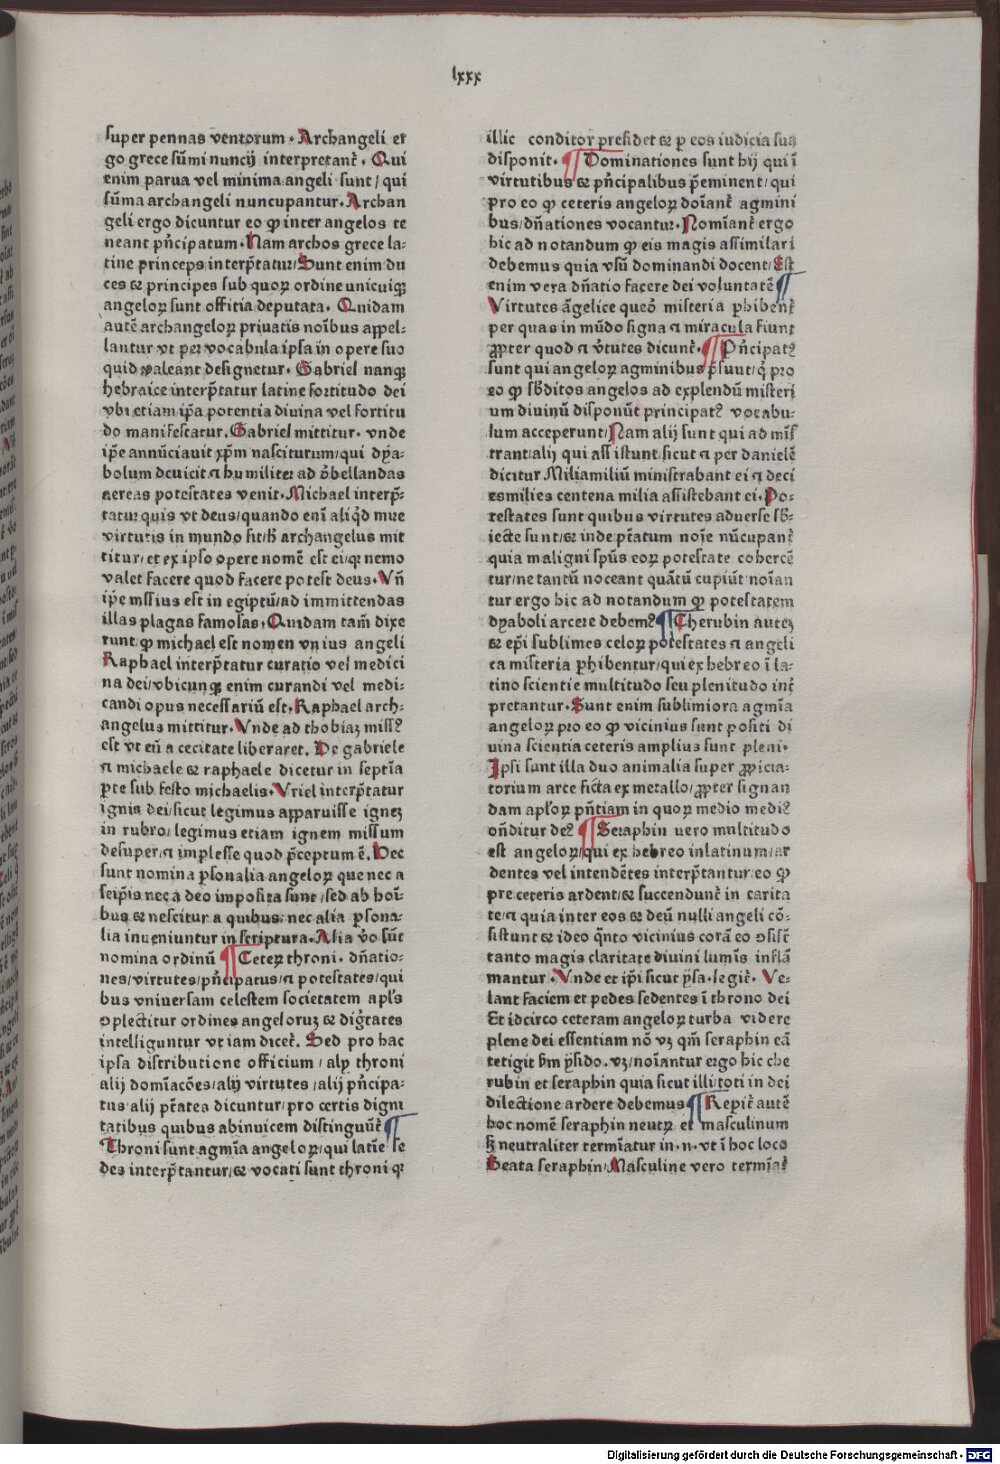 lxxx
super pennas ventorum · Archangeli er
go grece sūmi nuncij interpretant᷑ · Qui
enim parua vel minima angeli sunt / qui
sūma archangeli nuncupantur · Archan
geli ergo dicuntur eo ꝙ inter angelos te
neant pn̄cipatum · Nam archos grece la⸗
tine princeps interp̄tatur / Sunt enim du
ces ⁊ principes sub quoꝝ ordine unicuiqꝫ
angeloꝝ sunt offitia deputata · Quidam
autē archangeloꝝ priuatis noībus appel⸗
lantur vt per vocabula ipsa in opere suo
quid valeant designetur · Gabriel nanqꝫ
hebraice interp̄tatur latine fortitudo dei
vbi etiam ip̄a potentia diuina vel fortitu
do manifestatur. Gabriel mittitur · vnde
ip̄e annūciauit xp̄m nasciturum / qui dya⸗
bolum deuicit ⁊ humiliter ad d̄bellandas
aereas potestates venit · Michael interp̄⸗
tatur quis vt deus / quando enī aliq̇d mire
virtutis in mundo fit / h̄ archangelus mit
titur / et ex ipso opere nomē est ei / qꝛ nemo
valet facere quod facere potest deus · Vn̄
ip̄e missus est in egiptū / ad immittendas
illas plagas famosas / Quidam tam̄ dixe
runt ꝙ michael est nomen vnius angeli
Raphael interp̄tatur curatio vel medici
na dei / vbicunqꝫ enim curandi vel medi⸗
candi opus necessariū est · Raphael arch⸗
angelus mittitur · Vnde ad thobiaꝫ miss⁹
est vt eū a cecitate liberaret. De gabriele
⁊ michaele ⁊ raphaele dicetur in septīa
ꝑte sub festo michaelis · Vriel interp̄tatur
ignis dei / sicut legimus apparuisse igneꝫ
in rubro / legimus etiam ignem missum
desuper / ⁊ implesse quod p̄ceptum ē. Hec
sunt nomina ꝑsonalia angeloꝝ que nec a
seip̄is nec a deo imposita sunt / sed ab hoī⸗
bus ⁊ nescitur a quibus / nec alia ꝑsona⸗
lia inueniuntur in scriptura · Alia v̄o sūt
nomina ordinū ¶ Ceteꝝ throni · dn̄atio⸗
nes / virtutes / pn̄cipatus / ⁊ potestates / qui
bus vniuersam celestem societatem apl̄s
ↄplectitur ordines angeloruꝫ ⁊ dig̃tates
intelliguntur vt iam dicet᷑. Sed pro hac
ipsa distributione officium / alij throni
alij domīacōes / alij virtutes / alij pn̄cipa⸗
tus / alij ptātes dicuntur / pro certis digni
tatibus quibus abinuicem distinguūt᷑ ¶
Throni sunt agmīa angeloꝝ / qui latīe se
des interp̄tantur / ⁊ vocati sunt throni qꝛ
illic conditor presidet ⁊ ꝑ eos iudicia sua
disponit · ¶ Dominationes sunt hij qui ī
virtutibus ⁊ pn̄cipalibus p̄eminent / qui
pro eo ꝙ ceteris angeloꝝ doīant᷑ agmini
bus / dn̄ationes vocantur · Nomīant᷑ ergo
hic ad notandum ꝙ eis magis assimilari
debemus quia vsū dominandi docent / Est
enim vera dn̄atio facere dei voluntatē ¶
Virtutes āgelice queđ misteria ꝑhibent᷑
per quas in mūdo signa ⁊ miracula fiunt
ꝓpter quod ⁊ v̄tutes dicunt᷑ · ¶ Pn̄cipat⁹
sunt qui angeloꝝ agminibus p̄sunt / q̇ pro
eo ꝙ sb̄ditos angelos ad explendū misteri
um diuinū disponūt principat⁹ vocabu⸗
lum acceperunt / Nam alij sunt qui ad mīs̄
trant / alij qui assistunt / sicut ⁊ per danielē
dicitur Miliamiliū ministrabant ei ⁊ deci
esmilies centena milia assistebant ei · Po⸗
testates sunt quibus virtutes aduerse sb̄⸗
iecte sunt / ⁊ inde ptātum noīe nūcupant᷑
quia maligni spūs eoꝝ potestate cohercē
tur / ne tantū noceant quātū cupiūt / noīan
tur ergo hic ad notandum ꝙ potestatem
dyaboli arcere debem⁹ ¶ Cherubin auteꝫ
⁊ ep̄i sublimes celoꝝ potestates ⁊ angeli
ca misteria ꝑhibentur / qui ex hebreo ī la⸗
tino scientie multitudo seu plenitudo int᷑
pretantur · Sunt enim sublimiora agmīa
angeloꝝ pro eo ꝙ vicinius sunt positi di
uina scientia ceteris amplius sunt pleni ·
Ipsi sunt illa duo animalia super ꝓpicia⸗
torium arte ficta ex metallo / ꝓpter signan
dam apl̄oꝝ pn̄tiam in quoꝝ medio medi⁹
on̄ditur de⁹ ¶ Seraphin uero multitudo
est angeloꝝ / qui ex hebreo inlatinum / ar
dentes vel intendētes interp̄tantur / eo ꝙ
pre ceteris ardent / ⁊ succendunt᷑ in carita
te / ⁊ quia inter eos ⁊ deū nulli angeli cō⸗
sistunt ⁊ ideo q̄nto vicinius corā eo ↄsist᷑
tanto magis claritate diuini lumīs inflā
mantur · Vnde et ip̄i sicut yṡa · legit᷑ · Ve⸗
lant faciem et pedes sedentes ī throno dei
Et idcirco ceteram angeloꝝ turba videre
plene dei essentiam nō vꝫ qm̄ seraphin eā
tetigit b̄m ysido. vꝫ / noīantur ergo hic che
rubin et seraphin quia sicut illi toti in dei
dilectione ardere debemus ¶ Repit᷑ autē
hoc nomē seraphin neutꝝ et masculinum
ꝫ neutraliter termīatur in · n · vt ī hoc loco
Beata seraphin / Masculine vero termīat᷑
Digitalisierung gefördert durch die Deutsche Forschungsgemeinschaft - DFG